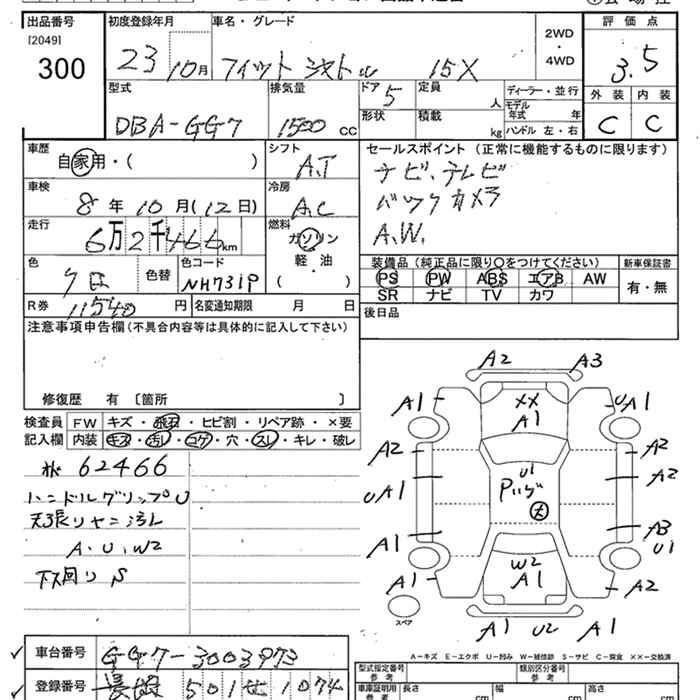 出品番号 初度登録年月 車名・グレード 2WD・4WD 評価点
[2049]
300 23 10月 フィット シャトル 15X 3.5
型式 排気量 ドア 定員 ディーラー・並行 外装 内装
DBA-GG7 1500 CC 5 人 モデル年式 年 C C
形状 積載 kg ハンドル 左・右
車歴 シフト セールスポイント (正常に機能するものに限ります)
自家用・( ) A.T ナビ、テレビ
車検 冷房 バックカメラ
8年 10月 (12日) A.C A.W.
走行 燃料
6万2千466km ガソリン
軽・油
( )
装備品 (純正品に限り○をつけてください) 新車保証書
色 色替 色コード PS PW ABS エアB AW 有・無
クロ NH731P SR ナビ TV カワ
R券 11540円 名変通知期限 月 日 後日品
注意事項申告欄(不具合内容等は具体的に記入して下さい)
修復歴 有 〔箇所 〕
検査員 FW キズ・飛石・ヒビ割・リペア跡・×要
記入欄 内装 キズ・汚レ・コゲ・穴・スレ・キレ・破レ
62466
ハンドルグリップU
天張リヤニ汚レ
A.U.W2
下回りS
A2 A3
A1 XX A1 UA1
A2 A2
U1 A2
UA1 Pハゲ
大
A1 A3 U1
W2
A1 A1 A2
スペア
A1 U2 A1
A-キズ E-エクボ U-凹み W-補修跡 S-サビ C-腐食 XX-交換済
車台番号 GG7-3003973
型式指定番号 参考 類別区分番号 参考
登録番号 501 せ 1074
車庫証明用 参考 長さ cm 幅 cm 高さ cm